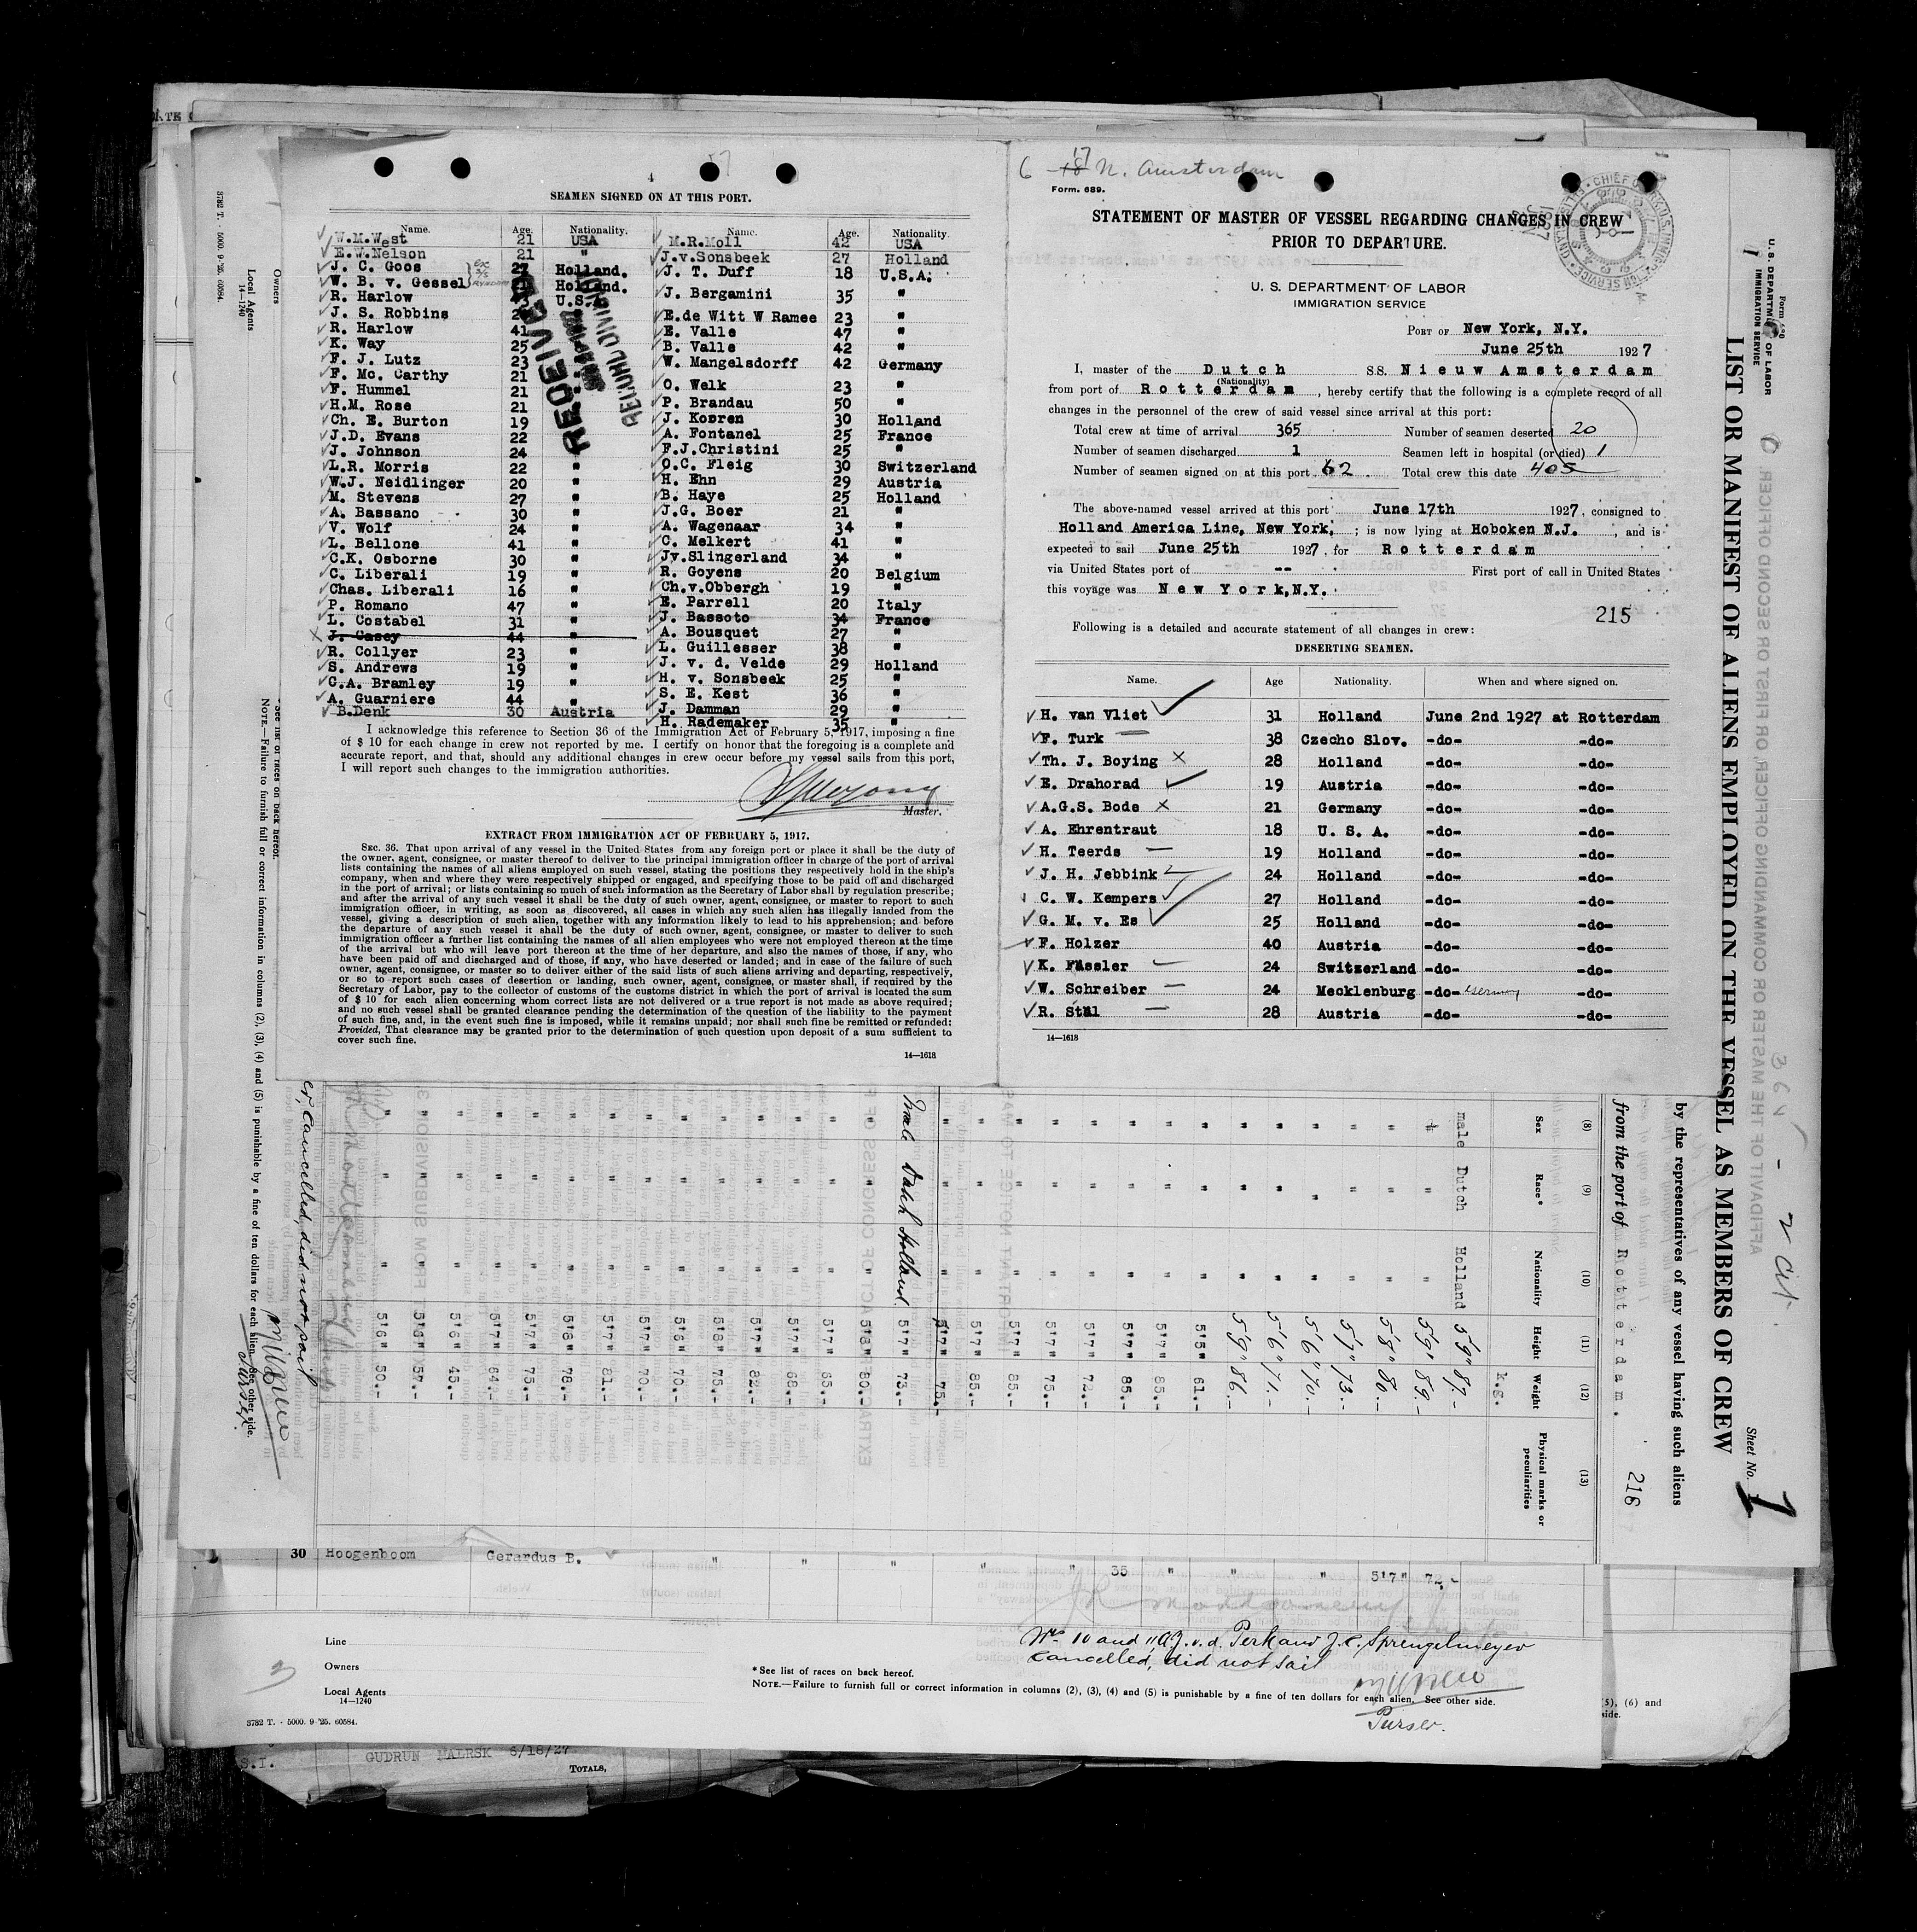 4
SEAMEN SIGNED ON AT THIS PORT.
Name. Age. Nationality. Name. Age. Nationality.
W.M.West 21 USA
E.W.Nelson 21 "
J. C. Goos 27 Holland.
W. B. v. Gessel Holland.
R. Harlow U.S.
J. S. Robbins
R. Harlow 41
K. Way 25
F. J. Lutz 23
F. Mc. Carthy 21
F. Hummel 21
H.M. Rose 21
Ch. E. Burton 19
J.D. Evans 22
J. Johnson 24 "
L.R. Morris 22 "
W.J. Neidlinger 20 "
M. Stevens 27 "
A. Bassano 30 "
V. Wolf 24 "
L. Bellone 41 "
C.K. Osborne 30 "
C. Liberali 19 "
Chas. Liberali 16 "
P. Romano 47 "
L. Costabel 31 "
J. Casey 44 "
R. Collyer 23 "
S. Andrews 19 "
C.A. Bramley 19 "
A. Guarniere 44 "
B.Denk 30 Austria
M.R.Moll 42 USA
J.v.Sonsbeek 27 Holland
J. T. Duff 18 U.S.A.
J. Bergamini 35 "
E.de Witt W Ramee 23 "
E. Valle 47 "
B. Valle 42 "
W. Mangelsdorff 42 Germany
O. Welk 23 "
P. Brandau 50 "
J. Kooren 30 Holland
A. Fontanel 25 France
F.J.Christini 25 "
O.C. Fleig 30 Switzerland
H. Ehn 29 Austria
B. Haye 25 Holland
J.G. Boer 21 "
A. Wagenaar 34 "
C. Melkert 41 "
Jv.Slingerland 34 "
R. Goyens 20 Belgium
Ch.v.Obbergh 19 "
E. Parrell 20 Italy
J. Bassoto 34 France
A. Bousquet 27 "
L. Guillesser 38 "
J. v. d. Velde 29 Holland
H. v. Sonsbeek 25 "
S. E. Kest 36 "
J. Damman 29 "
H. Rademaker 35 "
I acknowledge this reference to Section 36 of the Immigration Act of February 5, 1917, imposing a fine
of $ 10 for each change in crew not reported by me. I certify on honor that the foregoing is a complete and
accurate report, and that, should any additional changes in crew occur before my vessel sails from this port,
I will report such changes to the immigration authorities.
Master.
EXTRACT FROM IMMIGRATION ACT OF FEBRUARY 5, 1917.
SEC. 36. That upon arrival of any vessel in the United States from any foreign port or place it shall be the duty of
the owner, agent, consignee, or master thereof to deliver to the principal immigration officer in charge of the port of arrival
lists containing the names of all aliens employed on such vessel, stating the positions they respectively hold in the ship's
company, when and where they were respectively shipped or engaged, and specifying those to be paid off and discharged
in the port of arrival; or lists containing so much of such information as the Secretary of Labor shall by regulation prescribe;
and after the arrival of any such vessel it shall be the duty of such owner, agent, consignee, or master to report to such
immigration officer, in writing, as soon as discovered, all cases in which any such alien has illegally landed from the
vessel, giving a description of such alien, together with any information likely to lead to his apprehension; and before
the departure of any such vessel it shall be the duty of such owner, agent, consignee, or master to deliver to such
immigration officer a further list containing the names of all alien employees who were not employed thereon at the time
of the arrival but who will leave port thereon at the time of her departure, and also the names of those, if any, who
have been paid off and discharged and of those, if any, who have deserted or landed; and in case of the failure of such
owner, agent, consignee, or master so to deliver either of the said lists of such aliens arriving and departing, respectively,
or so to report such cases of desertion or landing, such owner, agent, consignee, or master shall, if required by the
Secretary of Labor, pay to the collector of customs of the customs district in which the port of arrival is located the sum
of $ 10 for each alien concerning whom correct lists are not delivered or a true report is not made as above required;
and no such vessel shall be granted clearance pending the determination of the question of the liability to the payment
of such fine, and, in the event such fine is imposed, while it remains unpaid; nor shall such fine be remitted or refunded:
Provided, That clearance may be granted prior to the determination of such question upon deposit of a sum sufficient to
cover such fine.
14—1618
6 17 18 N. Amsterdam
Form. 689.
STATEMENT OF MASTER OF VESSEL REGARDING CHANGES IN CREW
PRIOR TO DEPARTURE.
U. S. DEPARTMENT OF LABOR
IMMIGRATION SERVICE
PORT OF New York, N.Y.
June 25th 1927
I, master of the Dutch S.S. Nieuw Amsterdam
(Nationality)
from port of Rotterdam, hereby certify that the following is a complete record of all
changes in the personnel of the crew of said vessel since arrival at this port:
Total crew at time of arrival 365 Number of seamen deserted 20
Number of seamen discharged 1 Seamen left in hospital (or died) 1
Number of seamen signed on at this port 62 Total crew this date 405
The above-named vessel arrived at this port June 17th 1927, consigned to
Holland America Line, New York, ; is now lying at Hoboken N.J. , and is
expected to sail June 25th 1927, for Rotterdam
via United States port of -- First port of call in United States
this voyage was New York,N.Y.
215
Following is a detailed and accurate statement of all changes in crew:
DESERTING SEAMEN.
Name. Age Nationality. When and where signed on.
H. van Vliet 31 Holland June 2nd 1927 at Rotterdam
F. Turk 38 Czecho Slov. -do- -do-
Th. J. Boying 28 Holland -do- -do-
E. Drahorad 19 Austria -do- -do-
A.G.S. Bode 21 Germany -do- -do-
A. Ehrentraut 18 U. S. A. -do- -do-
H. Teerds 19 Holland -do- -do-
J. H. Jebbink 24 Holland -do- -do-
C. W. Kempers 27 Holland -do- -do-
G. M. v. Es 25 Holland -do- -do-
F. Holzer 40 Austria -do- -do-
K. Fässler 24 Switzerland -do- -do-
W. Schreiber 24 Mecklenburg -do- Germany -do-
R. Stül 28 Austria -do- -do-
14—1618
Form 690
U. S. DEPARTMENT OF LABOR
IMMIGRATION SERVICE
LIST OR MANIFEST OF ALIENS EMPLOYED ON THE VESSEL AS MEMBERS OF CREW
Sheet No. 1
by the representatives of any vessel having such aliens
from the port of Rotterdam.
218
(8) (9) (10) (11) (12) (13)
Sex Race* Nationality Height Weight Physical marks or peculiarities
k.g.
male Dutch Holland 5'9" 87.-
" " " 5'9" 89.-
" " " 5'8" 80.-
" " " 5'7" 73.-
" " " 5'6" 70.-
" " " 5'6" 71.-
" " " 5'9" 86.-
" " " 5'5" 61.-
" " " 5'7" 85.-
" " " 5'7" 85.-
" " " 5'7" 72.-
" " " 5'7" 75.-
" " " 5'7" 85.-
" " " 5'7" 85.-
" " " 5'7" 75.-
Male Dutch Holland 5'7" 73.-
" " " 5'8" 80.-
" " " 5'7" 65.-
" " " 5'7" 68.-
" " " 5'7" 82.-
" " " 5'8" 75.-
" " " 5'6" 70.-
" " " 5'7" 70.-
" " " 5'7" 81.-
" " " 5'8" 78.-
" " " 5'7" 75.-
" " " 5'7" 64.-
" " " 5'6" 45.-
" " " 5'6" 57.-
" " " 5'6" 50.-
cancelled, did not sail
Purser
Owners
Local Agents
14—1240
3782 T. - 5000. 9-'25. 60584.
* See list of races on back hereof.
NOTE.—Failure to furnish full or correct information in columns (2), (3), (4) and (5) is punishable by a fine of ten dollars for each alien. See other side.
30 Hoogenboom Gerardus B. " " " " " " 35 " " " 5'7"
Nrs 10 and 11 A.J. v.d. Perk and J.C. Sprengelmeyer
cancelled, did not sail
Purser.
Line
Owners
Local Agents
14—1240
* See list of races on back hereof.
NOTE.—Failure to furnish full or correct information in columns (2), (3), (4) and (5) is punishable by a fine of ten dollars for each alien. See other side.
3782 T. - 5000. 9-'25. 60584.
(5), (6) and
side.
S.I. GUDRUN MAERSK 6/18/27
TOTALS,